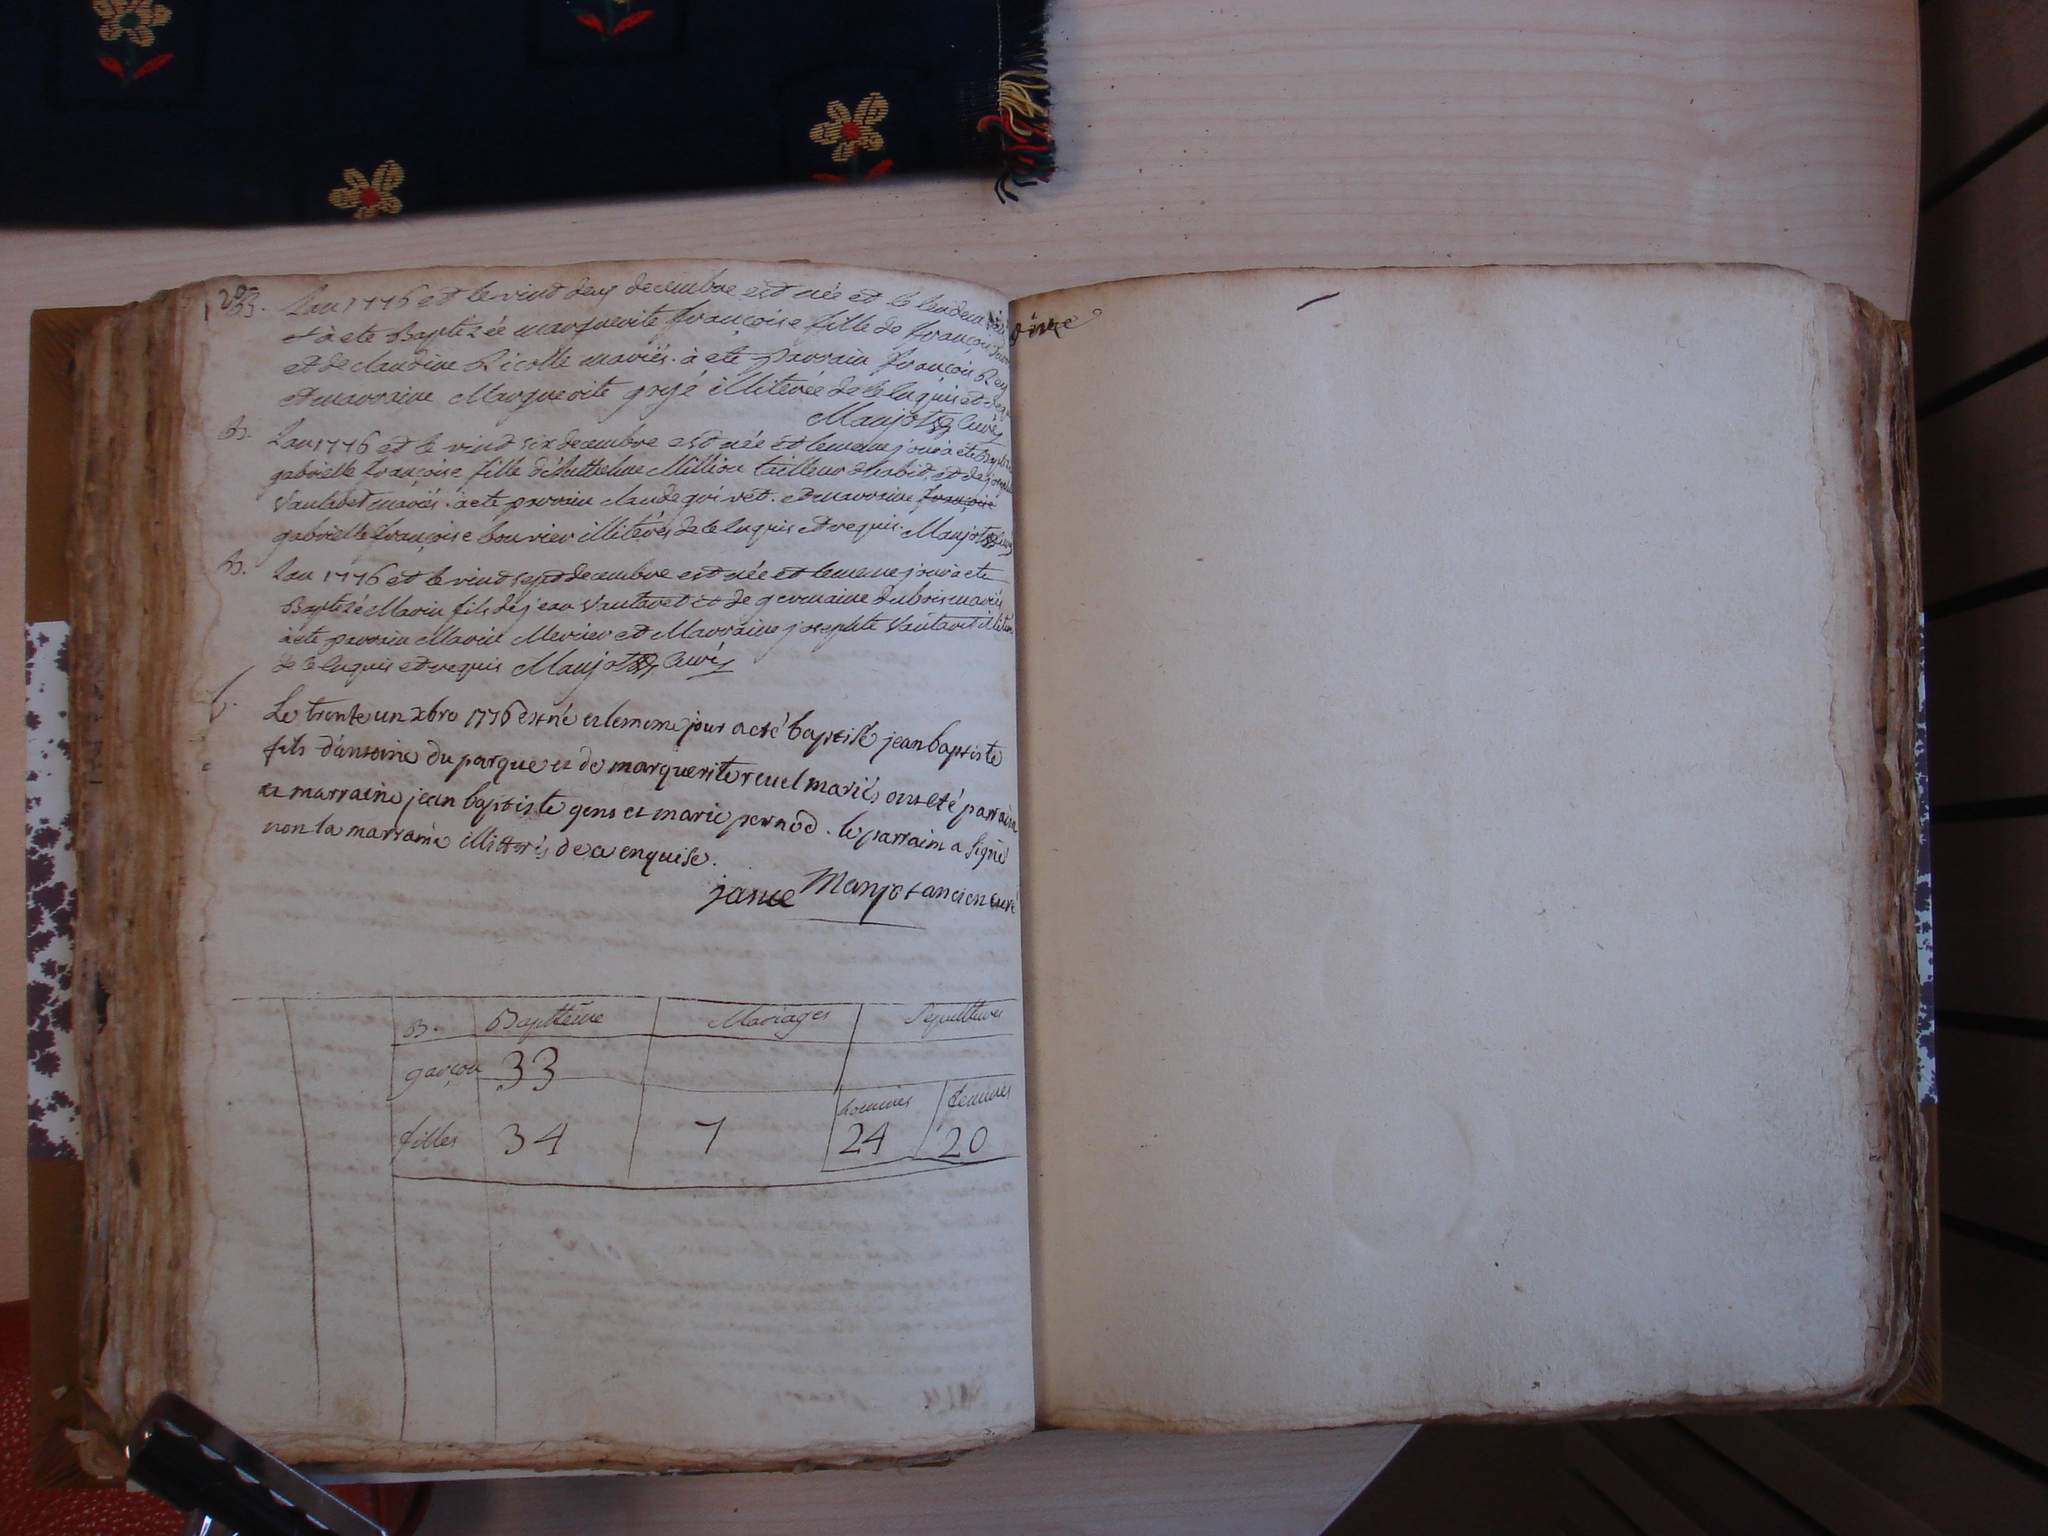 Lan 1776 et le vint deux decembre est née et le lendemain
et à ete Baptizée marguerite françoise fille de françois
et de claudine Nicolle mariés. à ete parrain françois Rey
et marraine Marguerite illiterée de ce enquis et requis
Maujot Curés
B. Lan 1776 et le vint six decembre est née et le meme jour à éte Baptizée
gabrielle françoise fille d'Anthelme Million tailleur d'habit, et de josephte
Vautaret mariés. à ete parrain claude quivet. et marraine françoise
gabrielle françoise bouvier illiterés de ce enquis et requis. Maujot Curés
B. Lan 1776 et le vint sept decembre est née et le meme jour à ete
Baptizé Marin fils de jean Vautaret et de germaine dubois mariés
à ete parrain Marin Mercier et Marraine josephte Vautaret illiterés
de ce enquis et requis Maujot Curés
b. Le trente un xbre 1776 est né et le meme jour a eté baptisé jean baptiste
fils d'antoine du parque et de marguerite revel mariés ont eté parrain
et marraine jean baptiste gens et marie pernod. le parrain a signé
non la marraine illitteris de ce enquise.
janve Manjot ancien curé
B. Baptteme Mariages Sepulttures
garçon 33
hommes femmes
filles 34 7 24 20